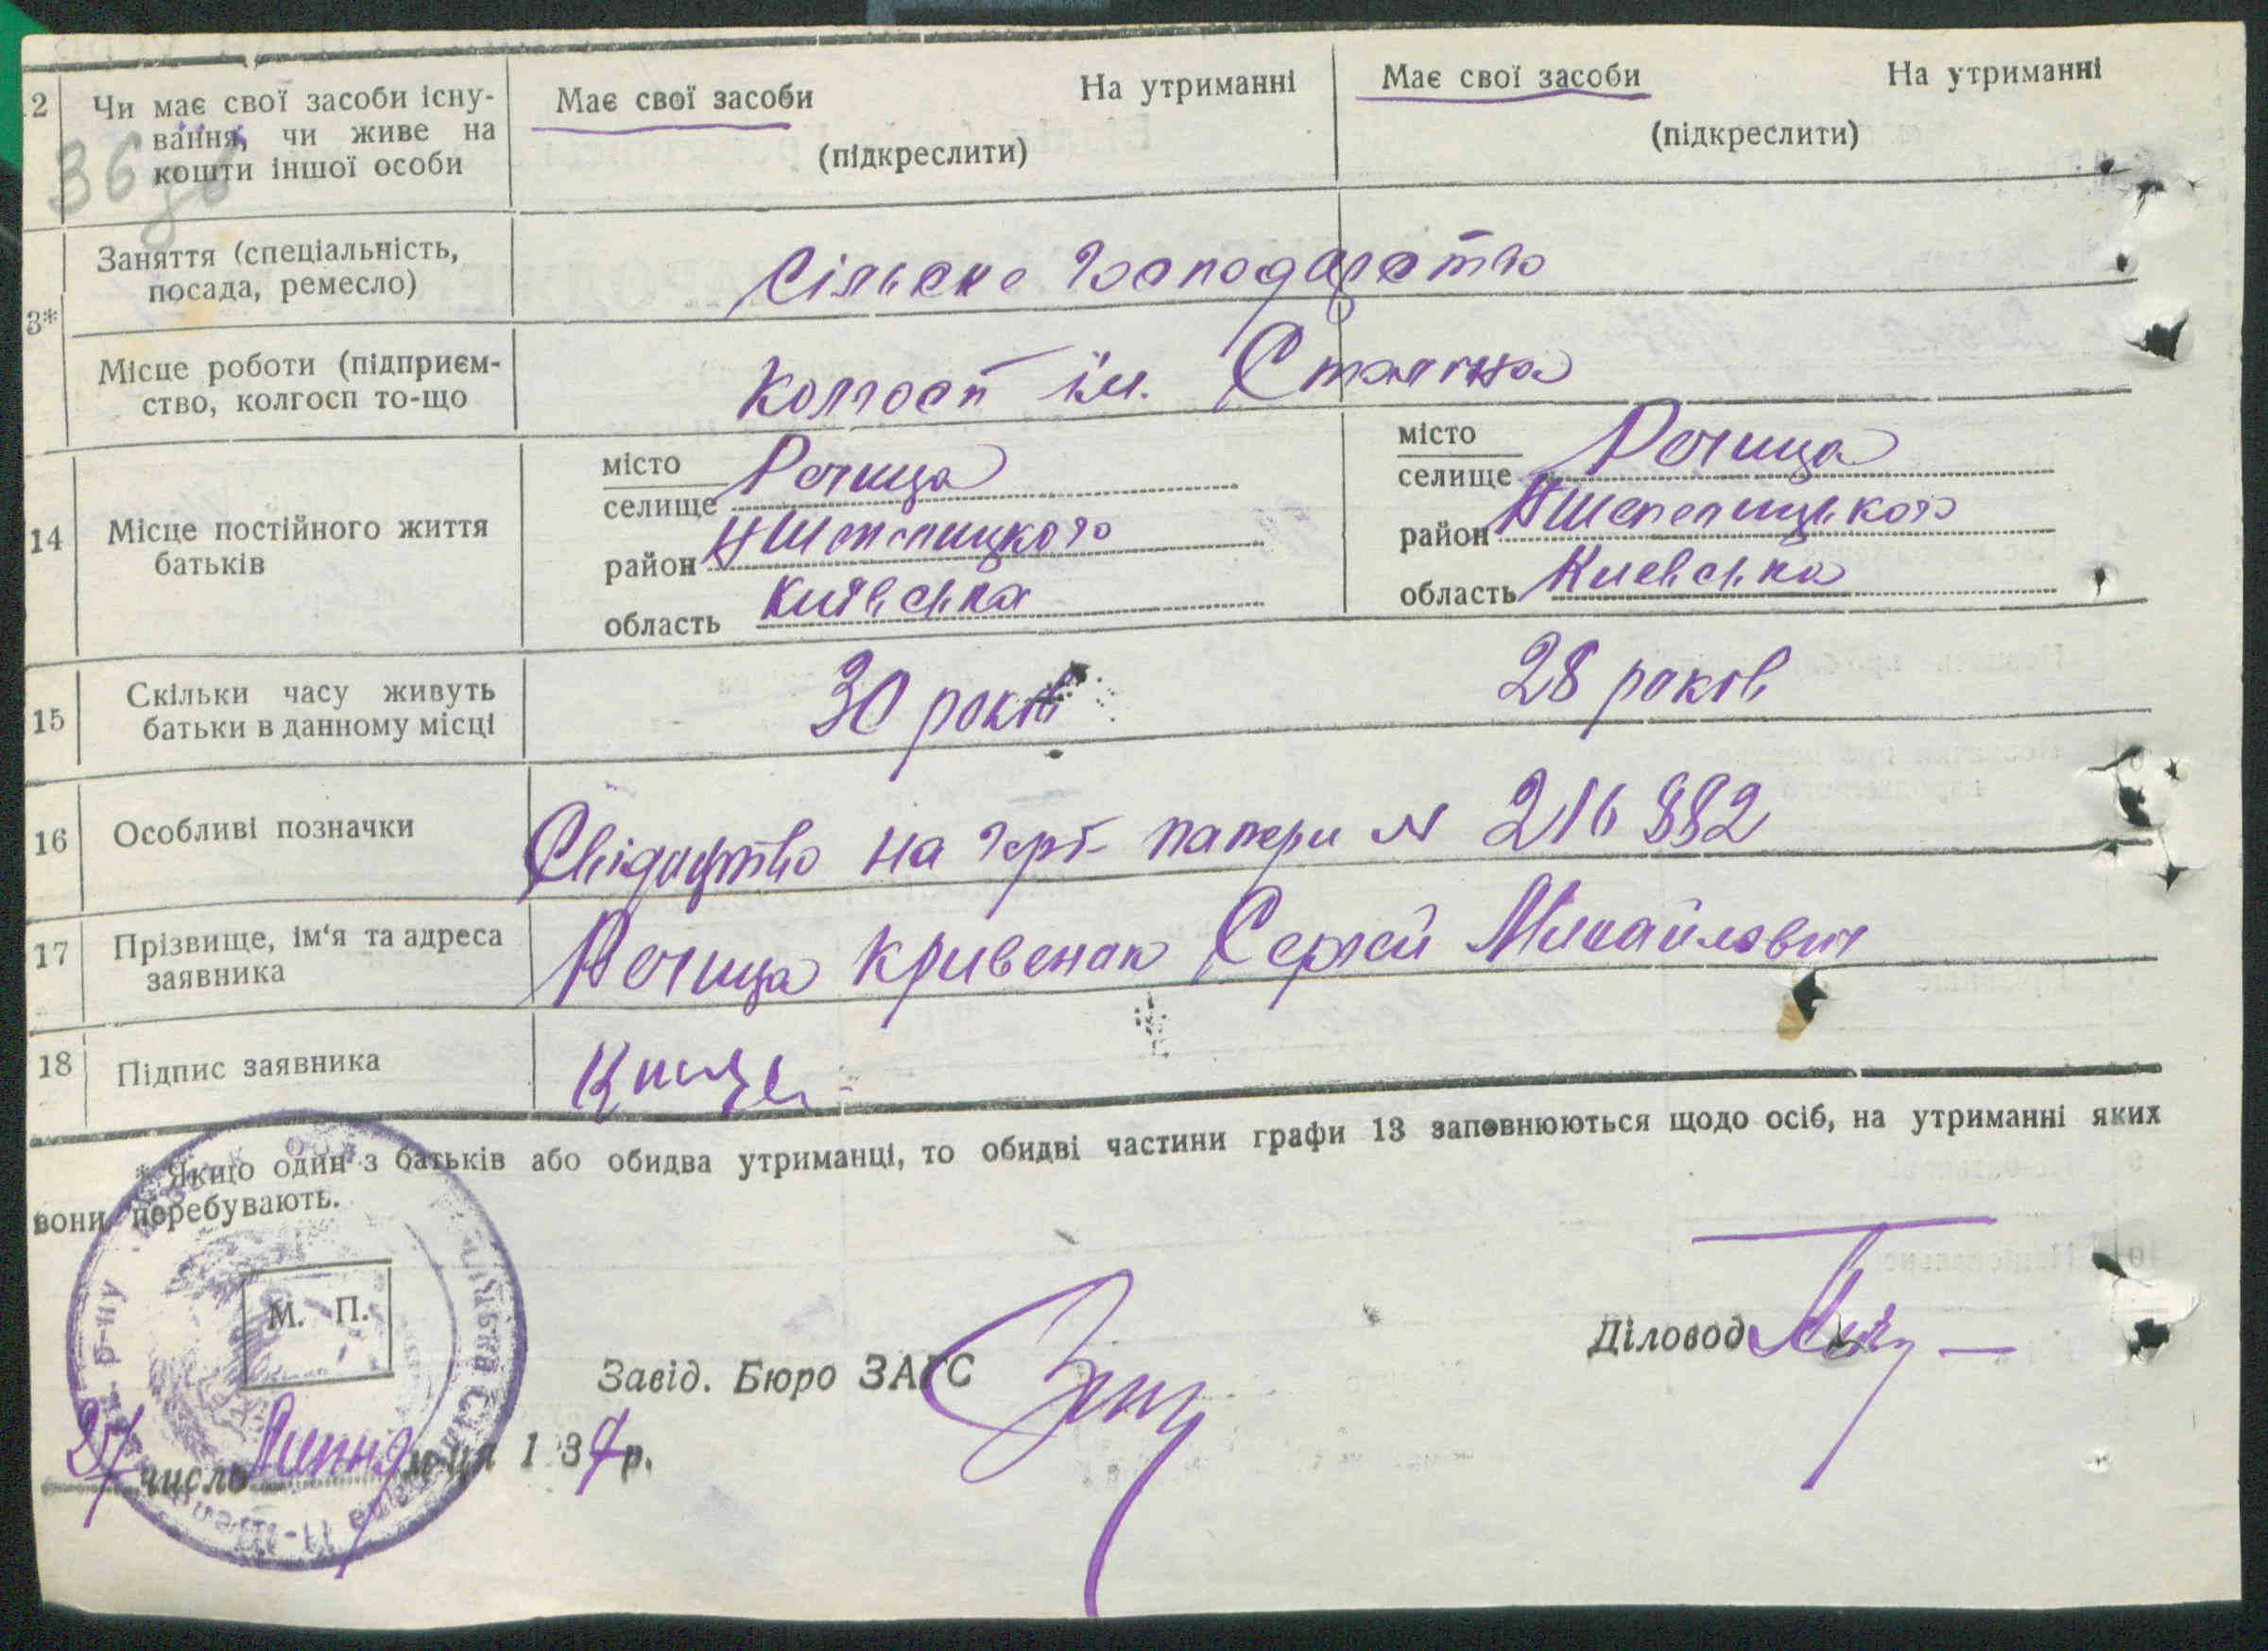 2 Чи має свої засоби існу-
вання, чи живе на
кошти іншої особи
Має свої засоби На утриманні
(підкреслити)
Має свої засоби На утриманні
(підкреслити)
36
3*
Заняття (спеціальність,
посада, ремесло)
Сільске господарство
Місце роботи (підприєм-
ство, колгосп то-що
Колгосп ім. Сталина
14 Місце постійного життя
батьків
місто
селище Рочища
район НШепелицкого
область Київська
місто
селище Рочища
район НШепелицького
область Киевська
15 Скільки часу живуть
батьки в данному місці
30 років
28 років
16 Особливі позначки
Свідоцтво на герб папери N 216882
17 Прізвище, ім‘я та адреса
заявника
Рочища Кривенок Сергей Михайлович
18 Підпис заявника
* Якщо один з батьків або обидва утриманці, то обидві частини графи 13 заповнюються щодо осіб, на утриманні яких
вони перебувають.
р-ну
М. П.
Завід. Бюро ЗАГС
Діловод
27 число Липня м-ця 137 р.